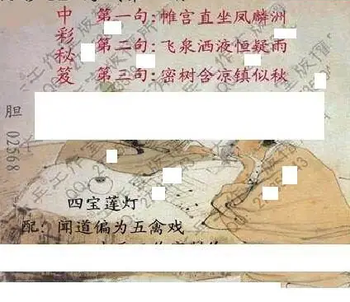 中彩秘笈
第一句:帷宫直坐凤麟洲
第二句:飞泉洒液恒疑雨
第三句:密树含凉镇似秋
胆 02568
四宝莲灯
配: 闻道偏为五禽戏